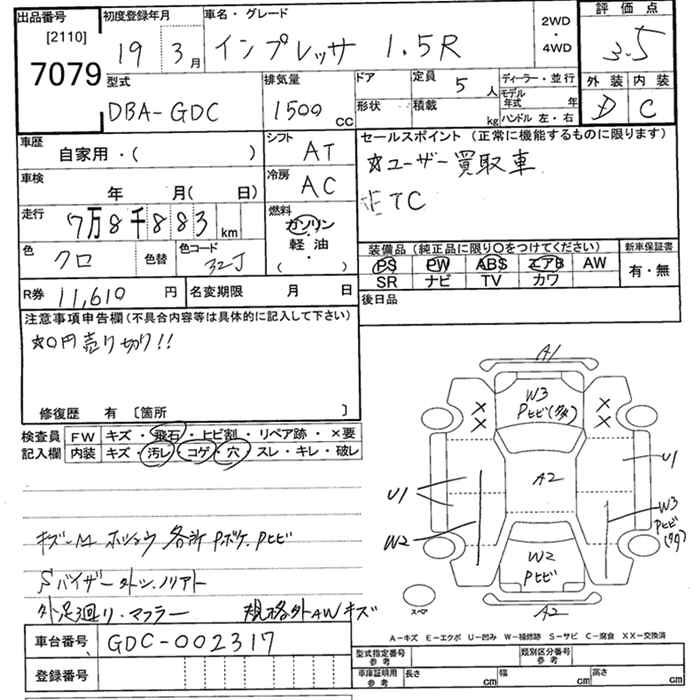 出品番号
[2110]
7079
初度登録年月
19年 3月
車名・グレード
インプレッサ 1.5R
2WD
・
4WD
評価点
3.5
外装 内装
D C
型式
DBA-GDC
排気量
1500 cc
ドア
形状
定員 5人
積載 kg
ディーラー・並行
モデル年式 年
ハンドル 左・右
車歴
自家用・( )
シフト
AT
セールスポイント(正常に機能するものに限ります)
☆ユーザー買取車
ETC
車検
年 月(日)
冷房
AC
走行
7万8千883 km
燃料
ガソリン
軽油
( ・ )
色
クロ
色替
色コード
32J
装備品(純正品に限り○をつけてください)
PS PW ABS エアB AW
SR ナビ TV カワ
新車保証書
有・無
R券 11,610 円
名変期限 月 日
後日品
注意事項申告欄(不具合内容等は具体的に記入して下さい)
☆0円売り切り!!
修復歴 有 [箇所 ]
検査員記入欄
FW キズ・飛石・ヒビ割・リペア跡・×要
内装 キズ・汚レ・コゲ・穴・スレ・キレ・破レ
各所 Pボケ.Pヒビ
Sバイザー
外足廻リ.マフラー 規格外AWキズ
A1
W3
Pヒビ(多)
×
×
×
×
U1
U1
A2
W2
W3
Pヒビ
(多)
W2
Pヒビ
A2
スペア
A-キズ E-エクボ U-凹み W-補修跡 S-サビ C-腐食 XX-交換済
車台番号 GDC-002317
登録番号
型式指定番号 参考
類別区分番号 参考
車庫証明用 参考 長さ cm 幅 cm 高さ cm